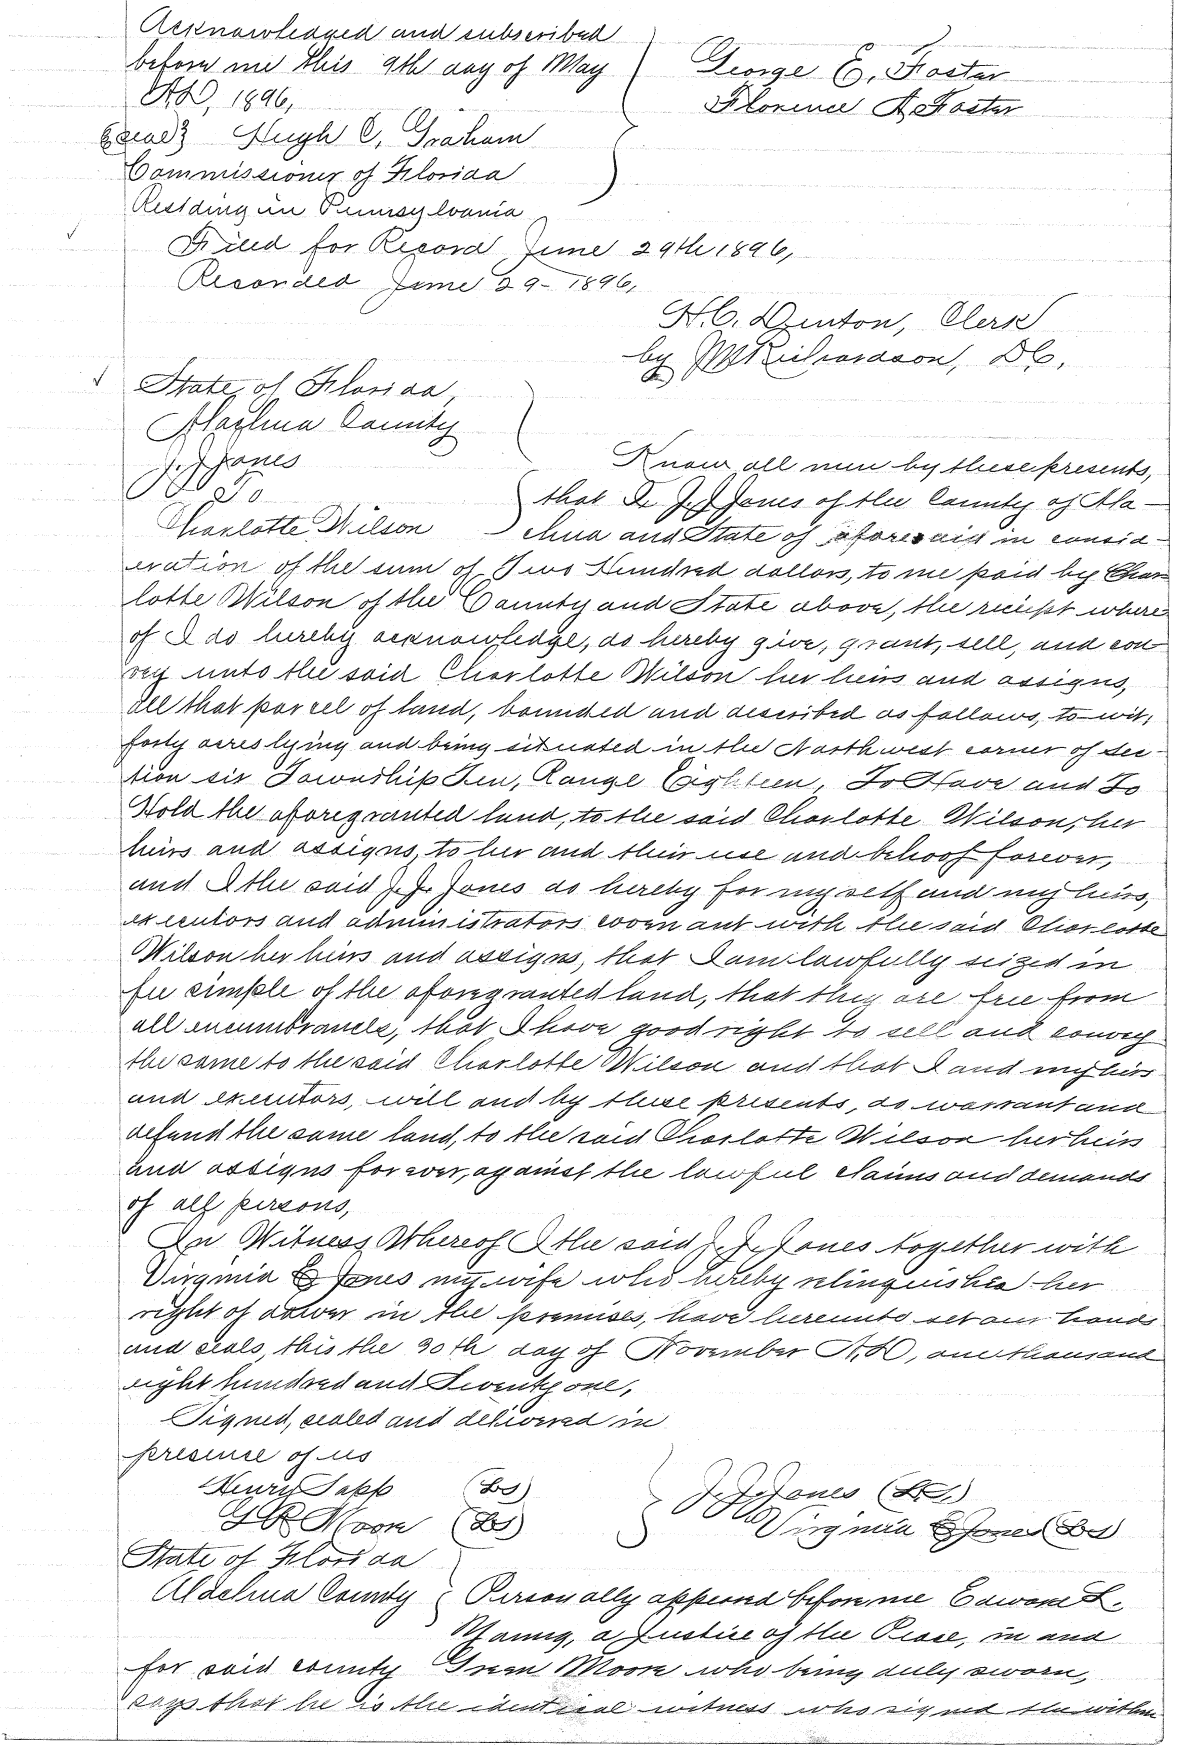 Acknowledged and subscribed
before me this 9th day of May
A.D, 1896,
George E. Foster
Florence A. Foster
{Seal} Hugh C, Graham
Commissioner of Florida
Residing in Pennsylvania
Filed for Record June 29th 1896,
Recorded June 29- 1896,
H. C. Denton, Clerk
by Richardson, D C,
State of Florida,
Alachua County
J. J. Jones
To
Charlotte Wilson
Know all men by these presents,
that I J. J. Jones of the County of Ala-
chua and State of aforesaid in consid-
eration of the sum of Two Hundred dollars, to me paid by Char
lotte Wilson of the County and State above, the reciept where
of I do hereby acknowledge, do hereby give, grant, sell, and con
vey unto the said Charlotte Wilson her heirs and assigns,
all that parcel of land, bounded and described as follows, to-wit,
forty acres lying and being situated in the North west corner of Sec-
tion six Township Ten, Range Eighteen, To Have and To
Hold the aforegranted land, to the said Charlotte Wilson, her
heirs and assigns, to her and their use and behoof forever,
and I the said J. J. Jones do hereby for myself and my heirs,
executors and administrators covenant with the said Charlotte
Wilson her heirs and assigns, that I am lawfully seized in
fee simple of the aforegranted land, that they are free from
all encumbrances, that I have good right to sell and convey
the same to the said Charlotte Wilson and that I and my heirs
and executors, will and by these presents, do warrant and
defend the same land, to the said Charlotte Wilson her heirs
and assigns forever, against the lawful claims and demands
of all persons,
In Witness Whereof I the said J. J. Jones together with
Virginia E Jones my wife who hereby relinquishes her
right of dower in the premises, have hereunto set our hands
and seals, this the 30th day of November A,D, one thousand
eight hundred and Seventy one,
Signed, sealed and delivered in
presence of us
Henry Sapp (LS)
G R Moore (LS)
J. J. Jones (L.S.)
Virginia E Jones (LS)
State of Florida
Alachua County
Personally appeared before me Edward L.
a Justice of the Peace, in and
for said county Green Moore who being duly sworn,
says that he is the identical witness who signed the within